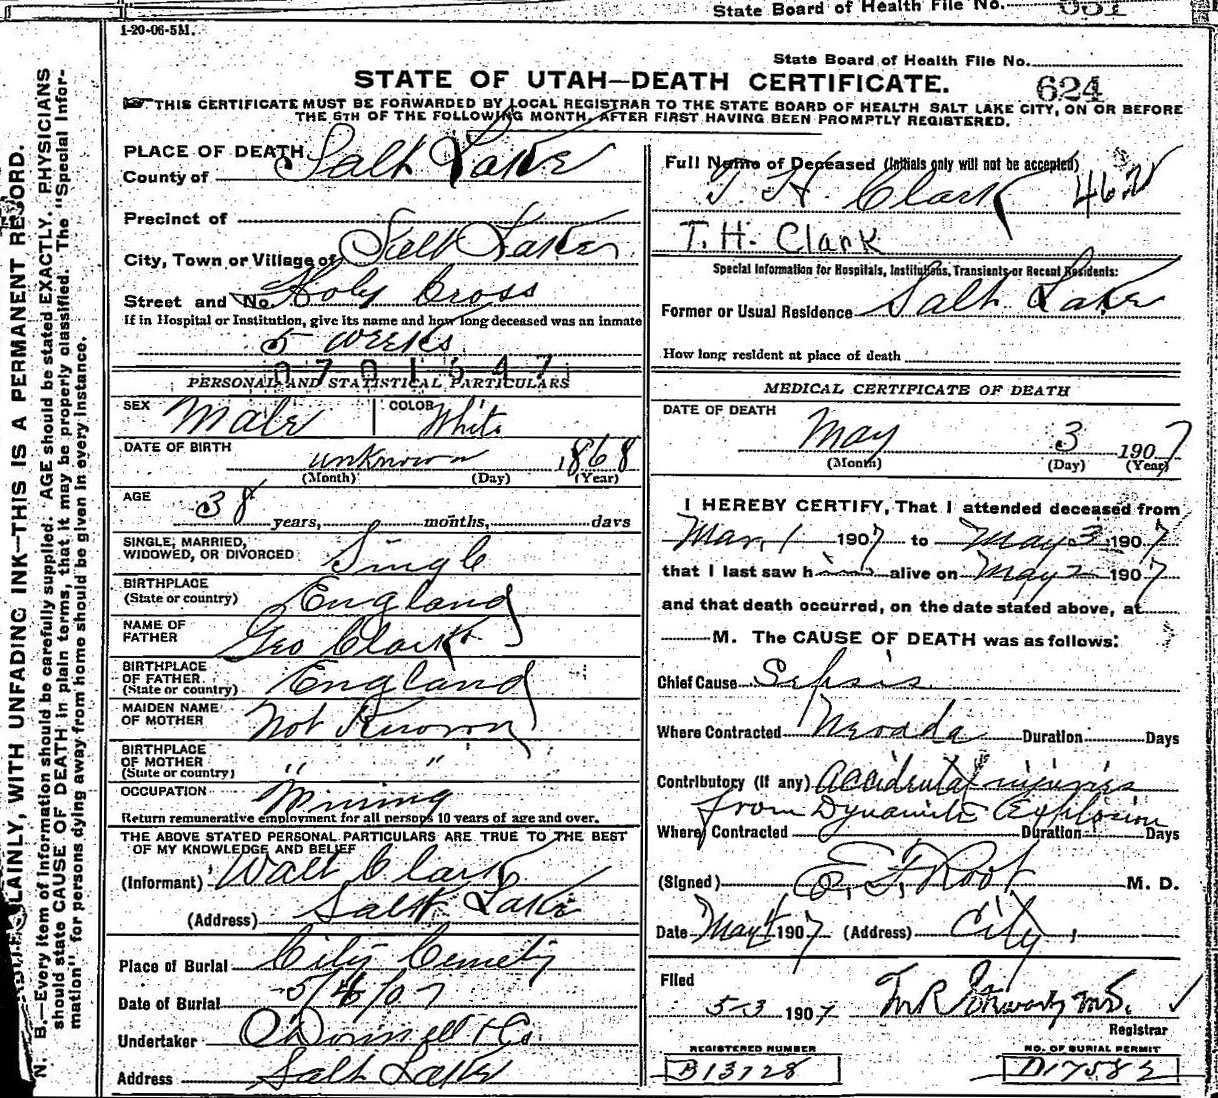 State Board of Health File No. 631
1-20-06-5M.
State Board of Health File No.
STATE OF UTAH—DEATH CERTIFICATE.
624
THIS CERTIFICATE MUST BE FORWARDED BY LOCAL REGISTRAR TO THE STATE BOARD OF HEALTH SALT LAKE CITY, ON OR BEFORE
THE 5TH OF THE FOLLOWING MONTH, AFTER FIRST HAVING BEEN PROMPTLY REGISTERED.
N. B.—Every item of information should be carefully supplied. AGE should be stated EXACTLY. PHYSICIANS
should state CAUSE OF DEATH in plain terms, that it may be properly classified. The "Special Infor-
mation" for persons dying away from home should be given in every instance.
PLAINLY, WITH UNFADING INK—THIS IS A PERMANENT RECORD.
PLACE OF DEATH
County of Salt Lake
Precinct of
City, Town or Village of Salt Lake
Street and No. Holy Cross
If in Hospital or Institution, give its name and how long deceased was an inmate
5 weeks
0701547
PERSONAL AND STATISTICAL PARTICULARS
SEX Male COLOR White
DATE OF BIRTH unknown 1868
(Month) (Day) (Year)
AGE
38 years, months, days
SINGLE, MARRIED,
WIDOWED, OR DIVORCED Single
BIRTHPLACE
(State or country) England
NAME OF
FATHER Geo Clark
BIRTHPLACE
OF FATHER
(State or country) England
MAIDEN NAME
OF MOTHER Not Known
BIRTHPLACE
OF MOTHER
(State or country) " "
OCCUPATION Mining
Return remunerative employment for all persons 10 years of age and over.
THE ABOVE STATED PERSONAL PARTICULARS ARE TRUE TO THE BEST
OF MY KNOWLEDGE AND BELIEF
(Informant) Walt Clark
(Address) Salt Lake
Place of Burial City Cemety
Date of Burial 5/4/07
Undertaker O'Donnell & Co.
Address Salt Lake
Full Name of Deceased (Initials only will not be accepted)
T. H. Clark 462
T. H. Clark
Special Information for Hospitals, Institutions, Transients or Recent Residents:
Former or Usual Residence Salt Lake
How long resident at place of death
MEDICAL CERTIFICATE OF DEATH
DATE OF DEATH
May 3 1907
(Month) (Day) (Year)
I HEREBY CERTIFY, That I attended deceased from
Mar. 1 1907 to May 3 1907
that I last saw him alive on May 2 1907
and that death occurred, on the date stated above, at
M. The CAUSE OF DEATH was as follows:
Chief Cause Sepsis
Where Contracted Nevada Duration Days
Contributory (if any) Accidental injuries
from Dynamite Explosion
Where Contracted Duration Days
(Signed) E. F. Root M. D.
Date May 4 1907 (Address) City
Filed
5-3 1907
Registrar
REGISTERED NUMBER NO. OF BURIAL PERMIT
B13728 D17582